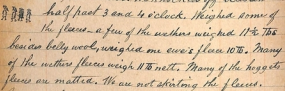 half past 3 and 4 o'clock. Weighed some of
the fleeces, a few of the wethers weighed 11½ lbs
besides belly wool, weighed one ewe's fleece 10 lb. Many
of the wethers fleeces weigh 11 lb nett. Many of the hoggets
fleeces are matted. We are not skirting the fleeces.